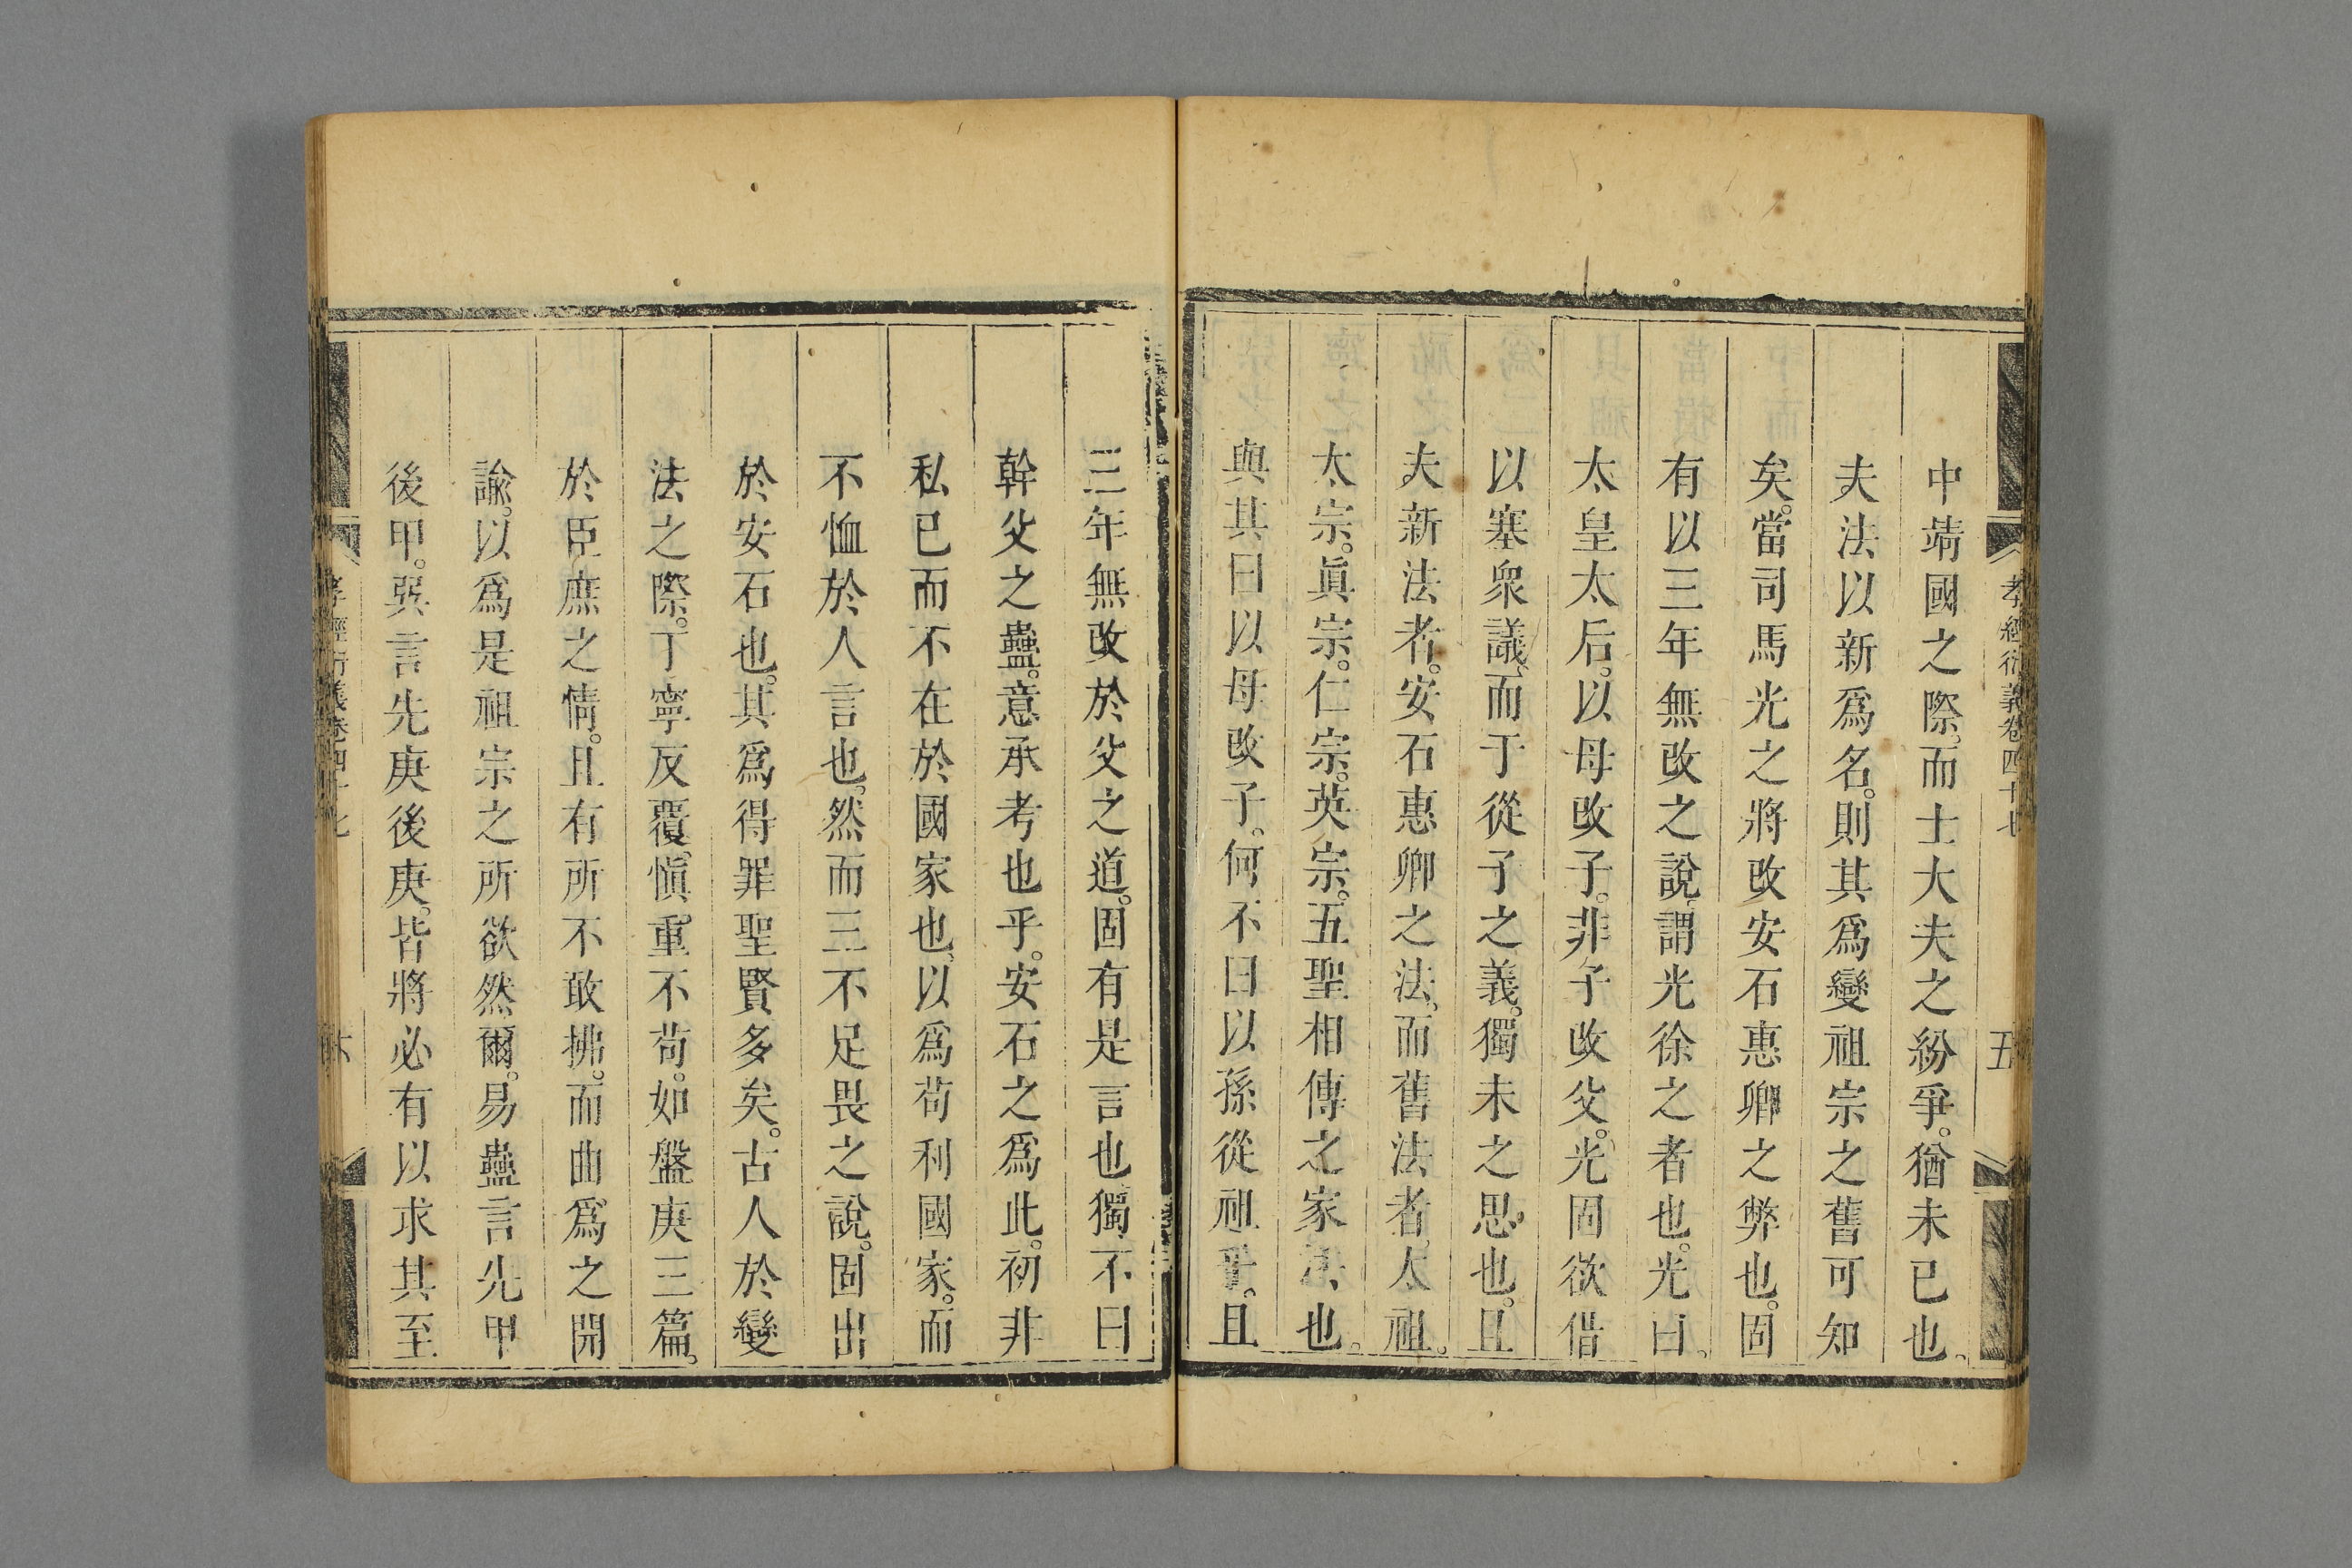 孝經衍義卷四十七 五
中靖國之際。而士大夫之紛爭。猶未已也。
夫法以新爲名。則其爲變祖宗之舊可知
矣。當司馬光之將改安石惠卿之弊也。固
有以三年無改之說。謂光徐之者也。光曰。
太皇太后。以母改子。非子改父。光固欲借
以塞衆議。而于從子之義。獨未之思也。且
夫新法者。安石惠卿之法。而舊法者。太祖。
太宗。眞宗。仁宗。英宗。五聖相傳之家法也。
與其曰以母改子。何不曰以孫從祖乎。且
三年無改於父之道。固有是言也獨不曰
幹父之蠱。意承考也乎。安石之爲此。初非
私已而不在於國家也。以爲苟利國家。而
不恤於人言也。然而三不足畏之說。固出
於安石也。其爲得罪聖賢多矣。古人於變
法之際。丁寧反覆。愼重不苟。如盤庚三篇。
於臣庶之情。且有所不敢拂。而曲爲之開
諭。以爲是祖宗之所欲然爾。易蠱言先甲
後甲。巽言先庚後庚。皆將必有以求其至
孝經衍義卷四十七 六